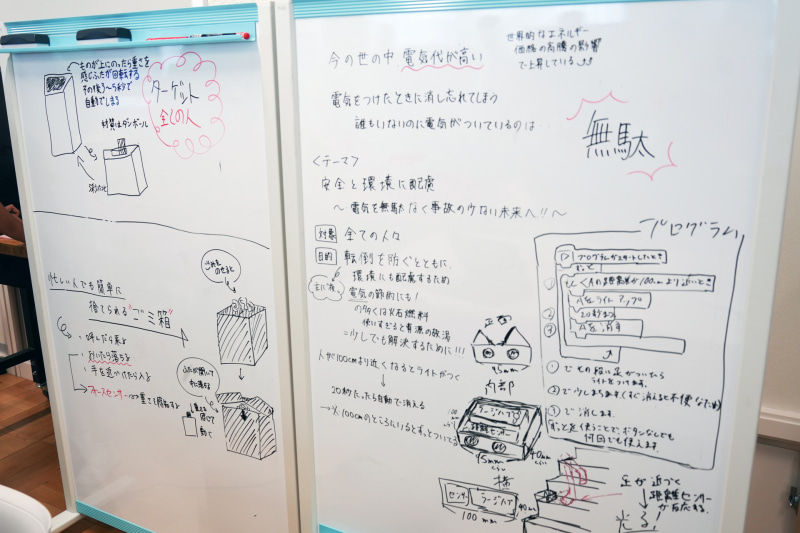 ものが上にのったら重さを
感じふたが回転する
その後3〜5秒で
自動でしまる
材質はダンボール
ターゲット
全ての人
忙しい人でも簡単に
捨てられる"ゴミ箱"
・呼んだら来る
・手を近づけたら
フォースセンサー
ごみを
のせると
ふたが開いて
重さを
感じて
動く
今の世の中 電気代が高い
世界的なエネルギー
価格の高騰の影響
で上昇している
電気をつけたときに消し忘れてしまう
誰もいないのに電気がついているのは…
無駄
<テーマ>
安全と環境に配慮
〜電気を無駄なく事故の少ない未来へ!!〜
対象 全ての人々
目的 転倒を防ぐとともに、
環境にも配慮するため
主に夜
電気の節約にも!
の多くは化石燃料
使いすぎると資源の枯渇
=少しでも解決するために!!!
人が100cmより近くなるとライトがつく
↓
20秒たったら自動で消える
→人が100cmのところにいるとずっとついてる
正面
95mm
内部
ラージハブ
距離センサー
95mm
くらい
40mm
くらい
横
センサ
ラージハブ
100mm
40mm
プログラム
プログラムがスタートしたとき
ずっと
① もし<Aの距離が100cmより近いとき
Aをライトアップ
② 20秒まつ
③ Aを消す
①でもの段に足がついたら
ライトをつけます。
②で少しまちます(すぐ消えると不便なため)
③で消します。
ずっとを使うことで、ボタンなしでも
何回でも使えます。
足が近づく
↓
距離センサー
が反応する。
光る!